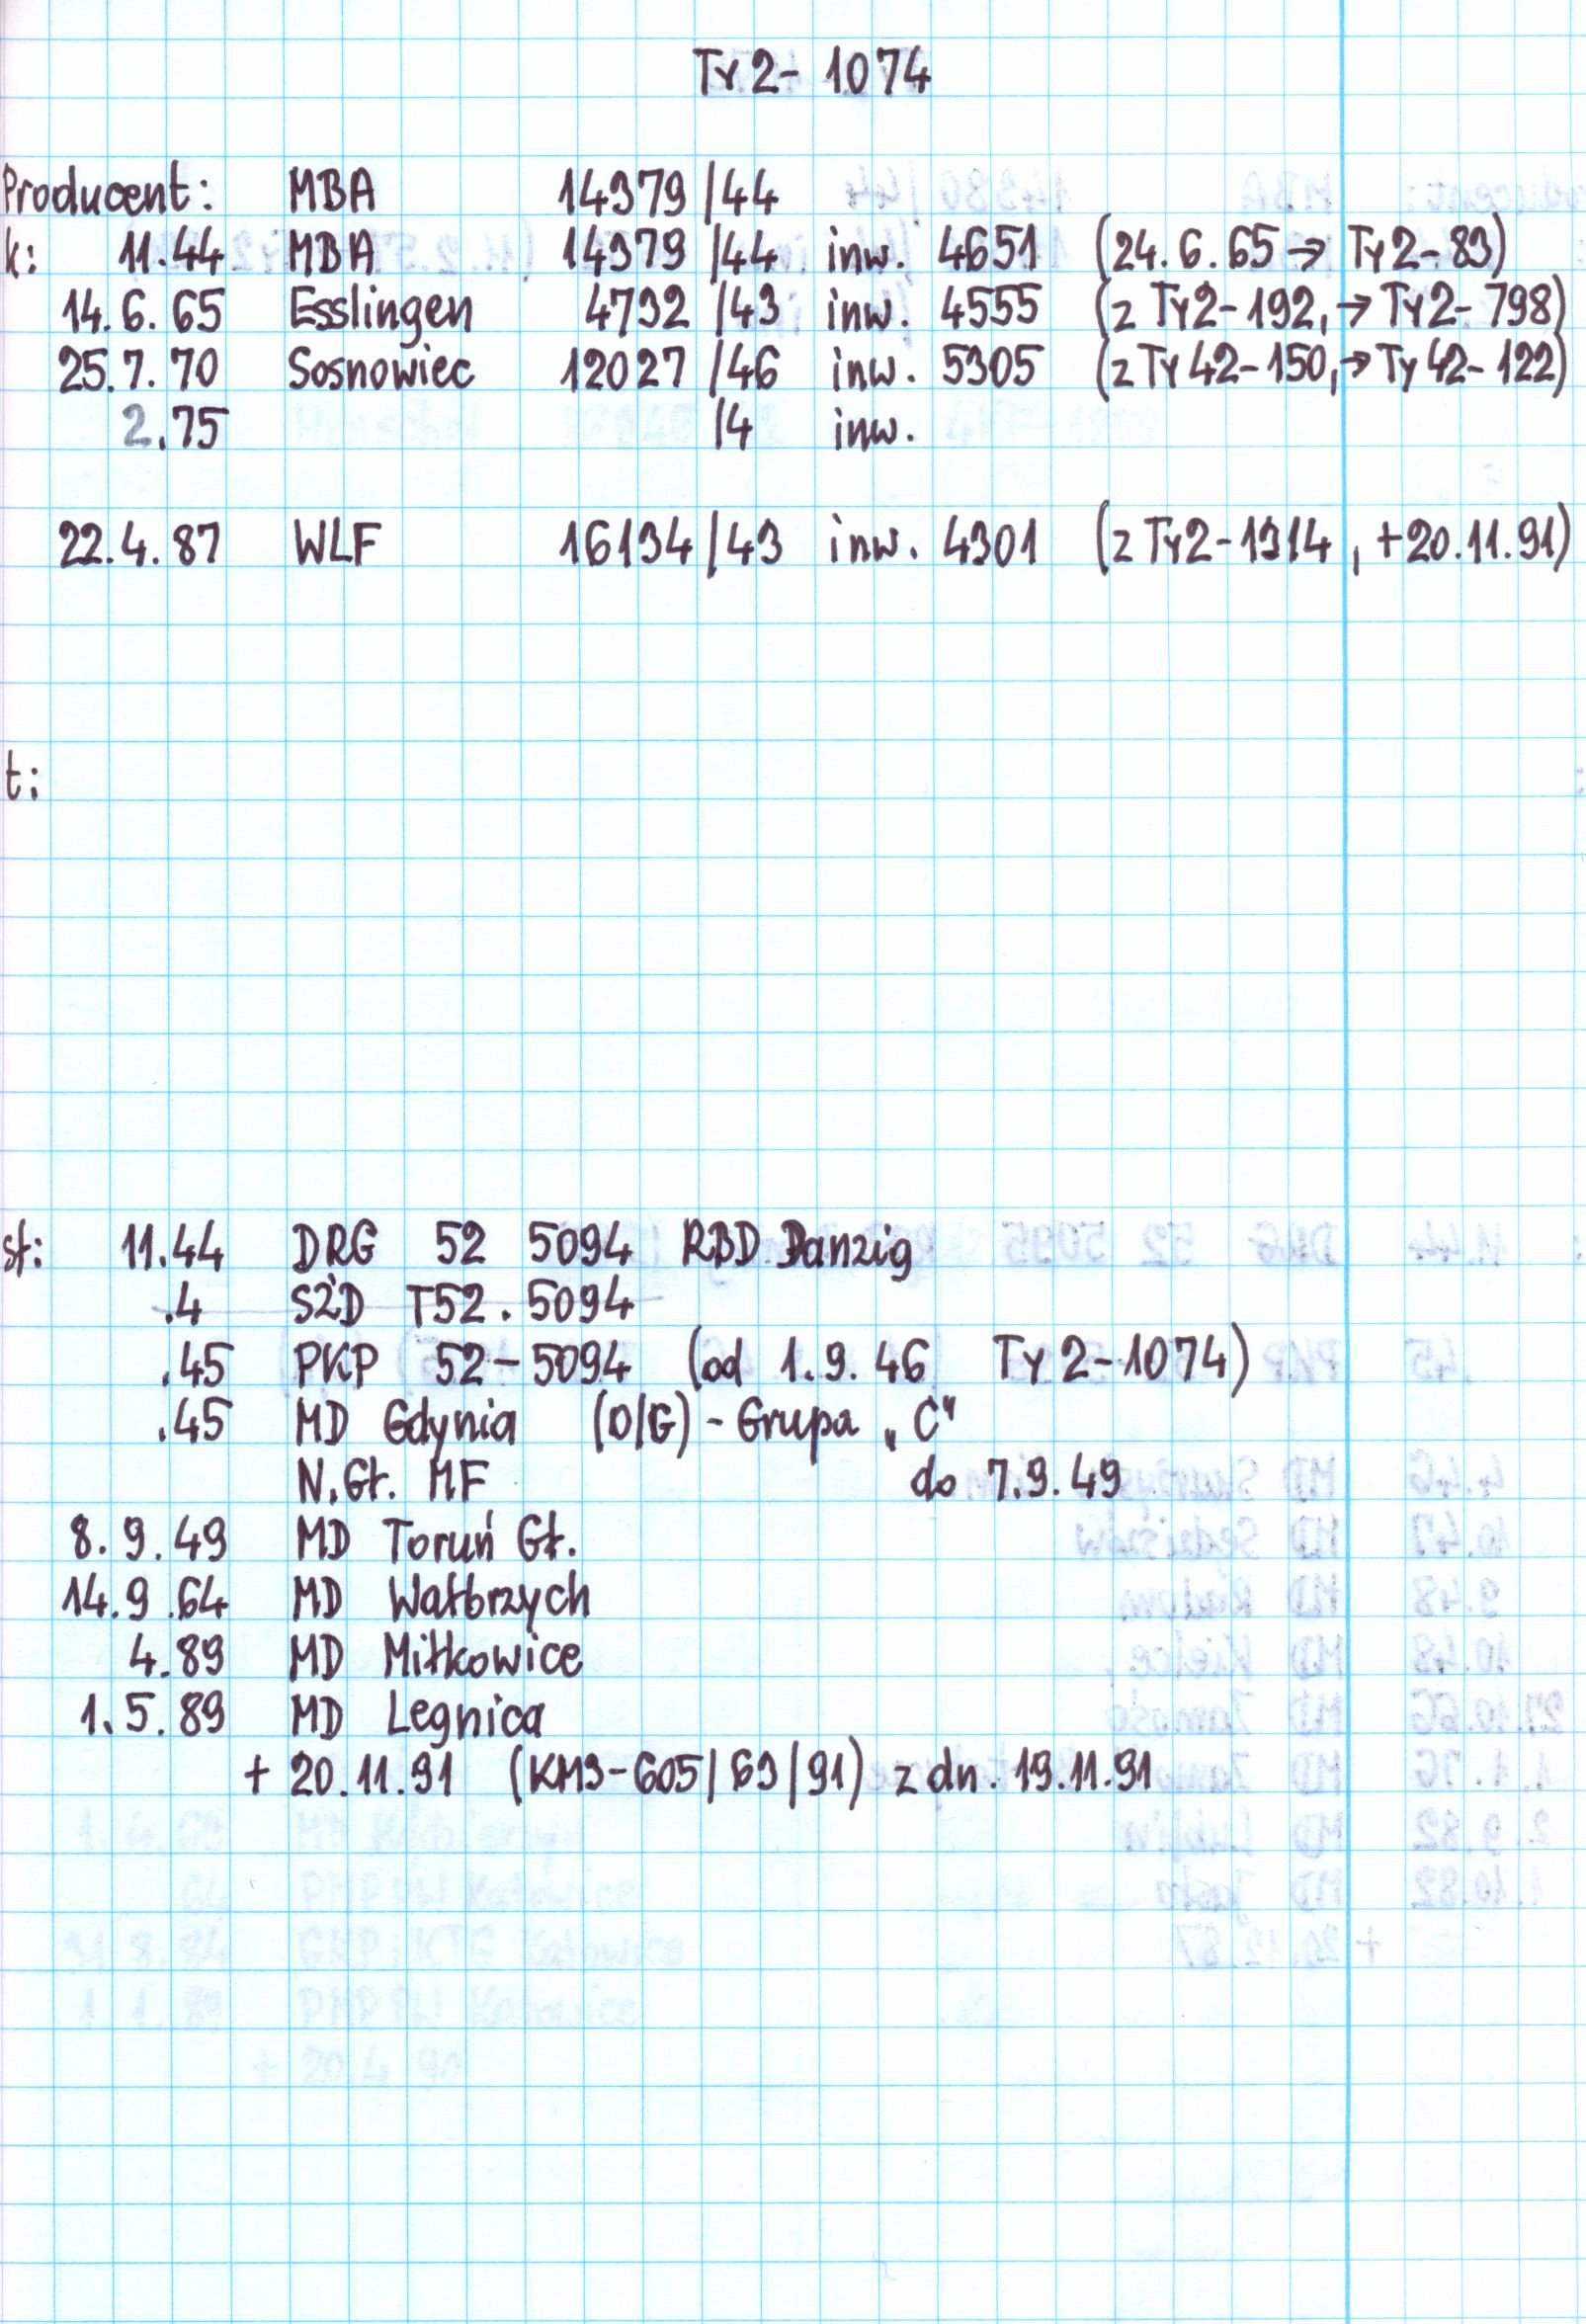 Ty2-1074
Producent: MBA 14379/44
k: 11.44 MBA 14379/44 inw. 4651 (24.6.65 → Ty2-83)
14.6.65 Esslingen 4732/43 inw. 4555 (z Ty2-192, → Ty2-798)
25.7.70 Sosnowiec 12027/46 inw. 5305 (z Ty42-150, → Ty42-122)
2.75 /4 inw.
22.4.87 WLF 16134/43 inw. 4301 (z Ty2-1314, +20.11.91)
t:
st: 11.44 DRG 52 5094 RBD Danzig
.4 SŽD T52.5094
.45 PKP 52-5094 (od 1.9.46 Ty2-1074)
.45 MD Gdynia (O/G) - Grupa „C"
N.Gł. MF do 7.9.49
8.9.49 MD Toruń Gł.
14.9.64 MD Wałbrzych
4.89 MD Miłkowice
1.5.89 MD Legnica
+ 20.11.91 (KM3-605/69/91) z dn. 19.11.91